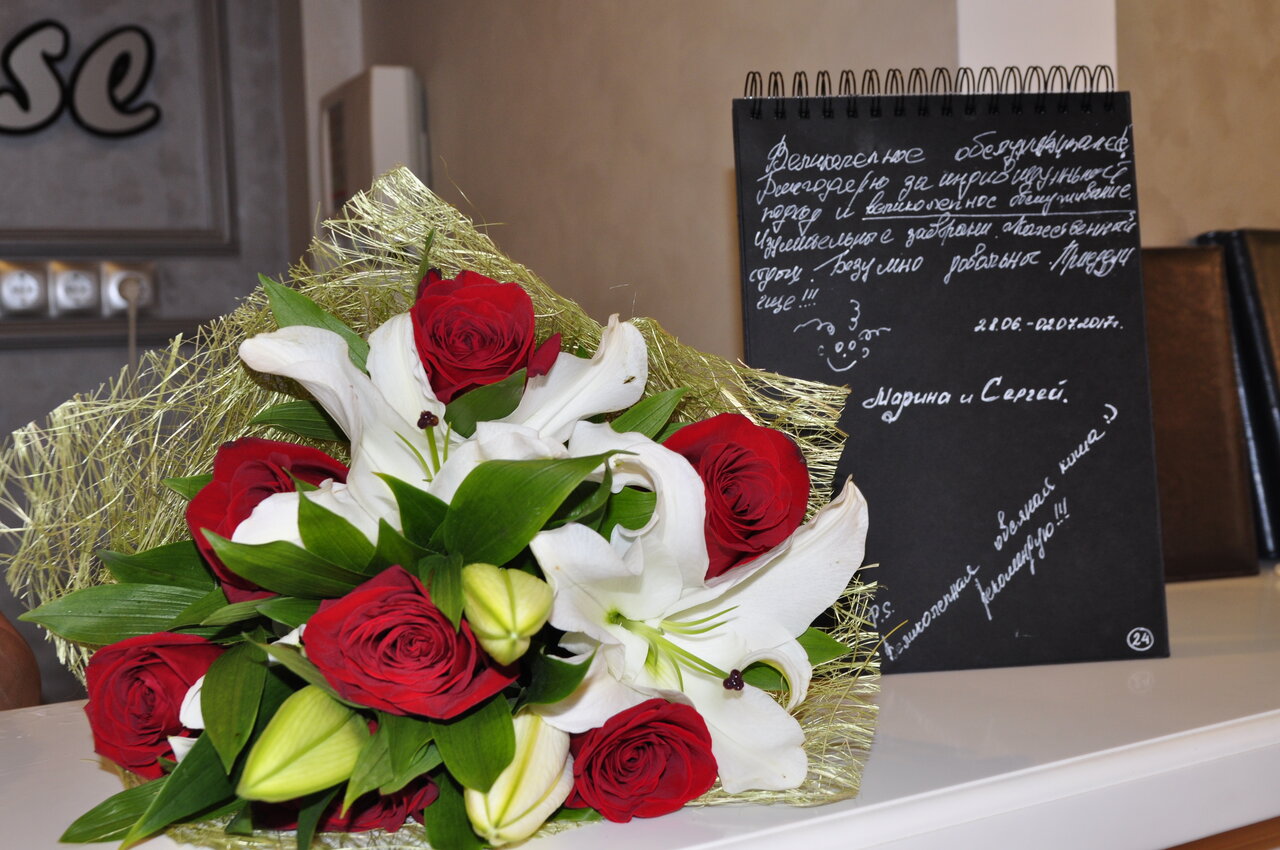 se
Великолепное обслуживание,
Благодарю за индивидуальный
подход и великолепное обслуживание.
Изумительные завтраки. Качественный
отдых. Безумно довольные. Приедем
еще!!!
28.06.-02.07.2017г.
Марина и Сергей.
P.S.
Великолепная овсяная каша :)
рекомендую!!!
24